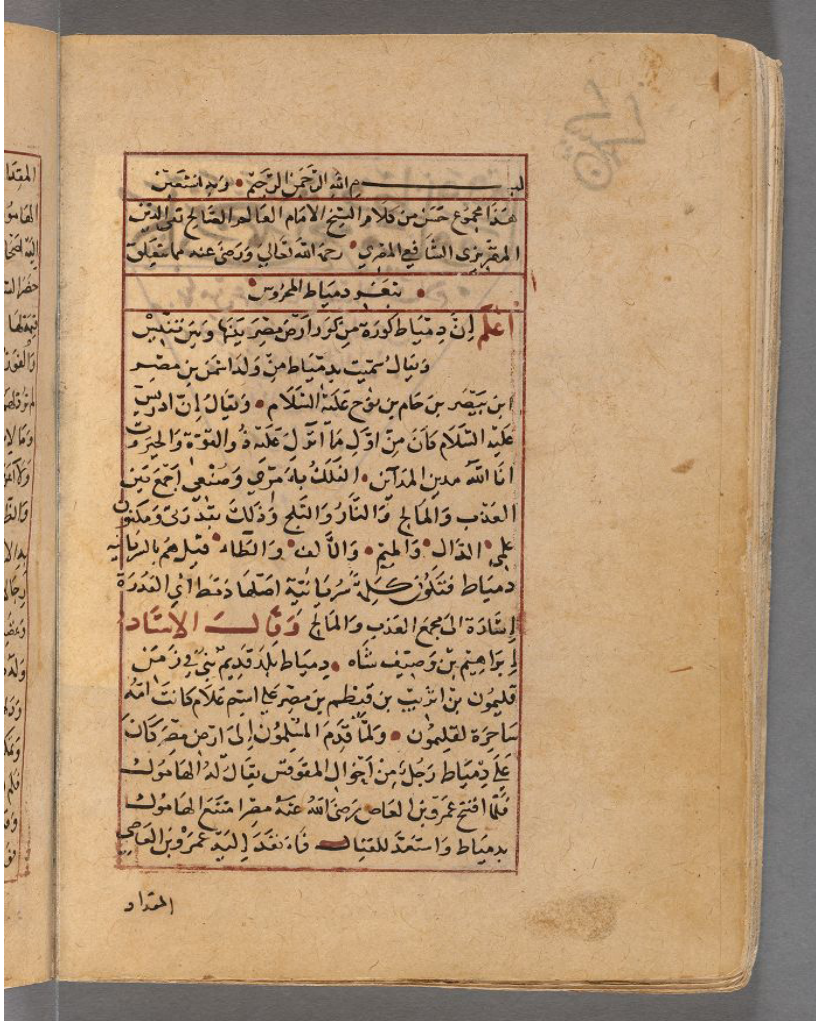 بسم الله الرحمن الرحيم • وبه استعين
هذا مجموع حسن من كلام الشيخ الامام العالم الصالح تقي الدين
المقريزي الشافعي المصري • رحمه الله تعالى ورضي عنه مما يتعلق
• بثغر دمياط المحروس •
اعلم ان دمياط كورة من كور ارض مصر بينها وبين تنيس
ويقال سميت بدمياط من ولد اشمن بن مصر
ابن بيصر بن حام بن نوح عليه السلام • ويقال ان ادريس
عليه السلام كان من اول ما انزل عليه ذو القوة والجبروت
انا الله مدين المداين • الفلك بامري وصنعي اجمع بين
العذب والمالح والنار والثلج وذلك بقدرتي ومكنون
علمي • الدال • والميم • والألف • والطاء • قيل هم بالسريانية
دمياط فتكون كلمة سريانية اصلها دمط اي القدرة
اشارة الى مجمع العذب والمالح وقال الاستاد
ابراهيم بن وصيف شاه • دمياط بلد قديم بني في زمن
قليمون بن اتريب بن قبطيم بن مصر على اسم غلام كانت امه
ساحرة لقليمون • ولما قدم المسلمون الى ارض مصر كان
على دمياط رجل من اخوال المقوقس يقال له الهاموك
فلما افتتح عمرو بن العاص رضي الله عنه مصر امتنع الهاموك
بدمياط واستعد للقتال فانفد اليه عمرو بن العاصي
المقداد
المقدا
الهامو
اليه
حضر